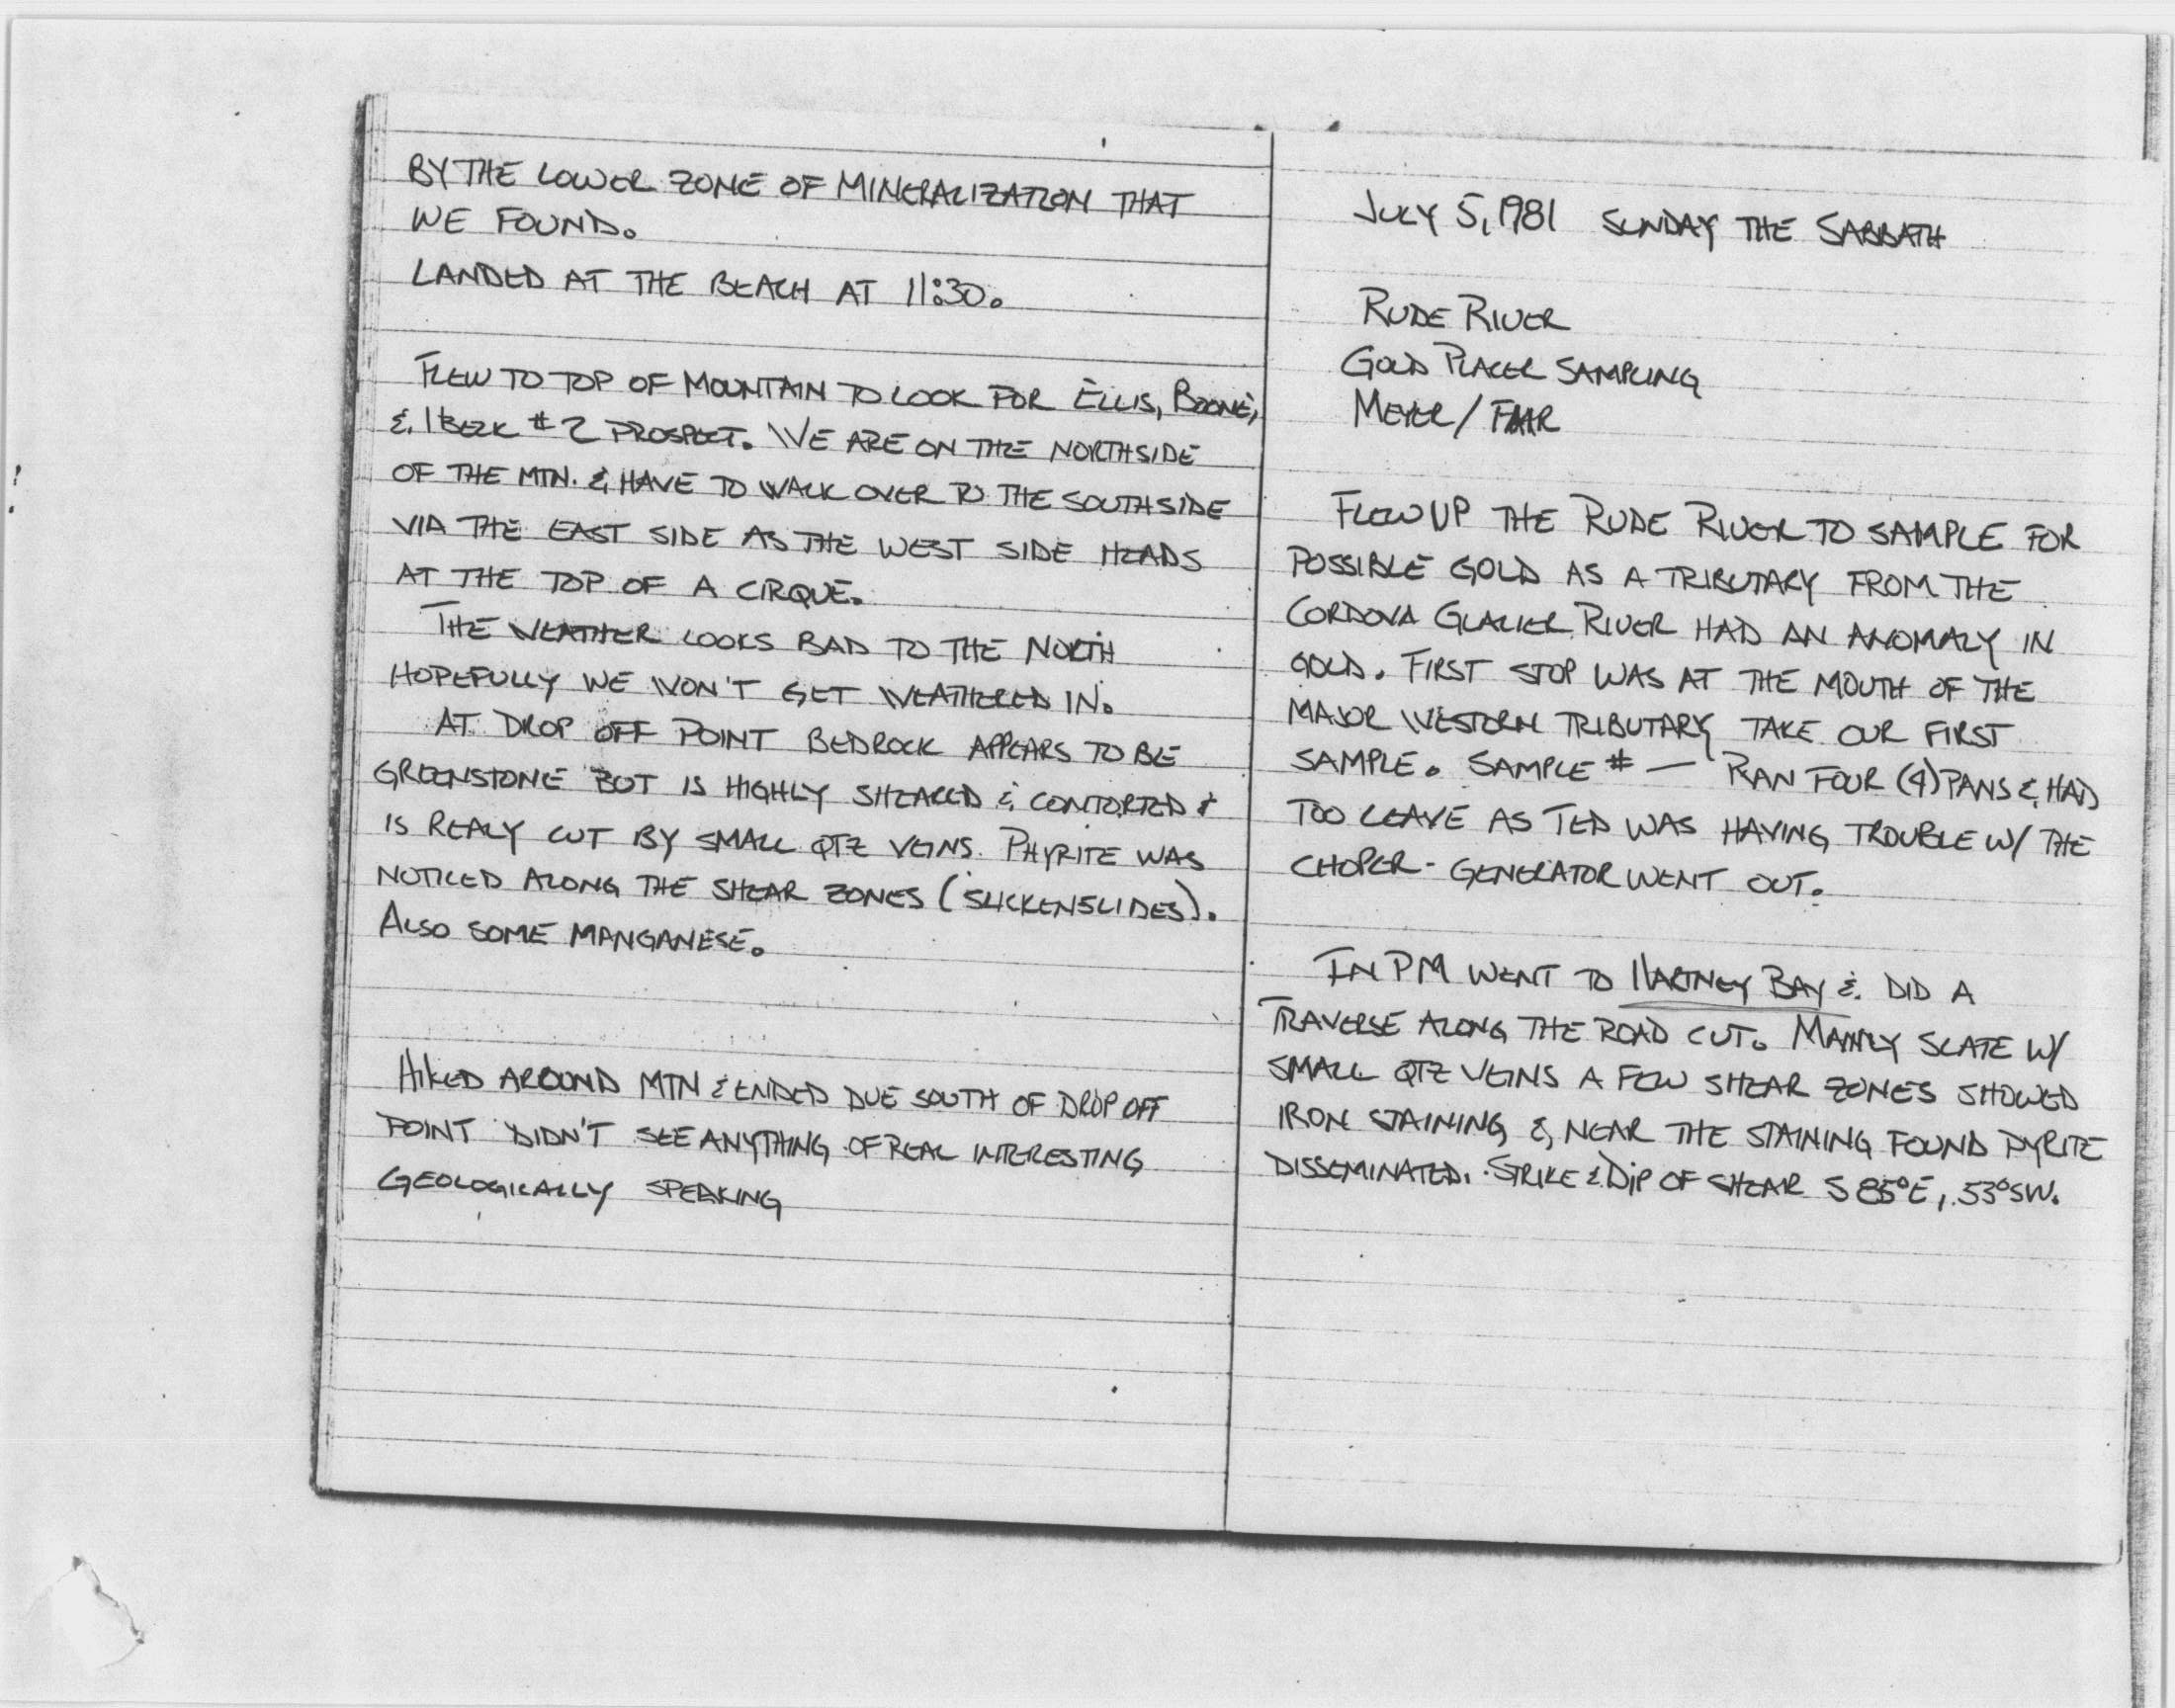 BY THE LOWER ZONE OF MINERALIZATION THAT
WE FOUND.
LANDED AT THE BEACH AT 11:30.
FLEW TO TOP OF MOUNTAIN TO LOOK FOR ELLIS, BOONE,
& IBECK #2 PROSPECT. WE ARE ON THE NORTHSIDE
OF THE MTN. & HAVE TO WALK OVER TO THE SOUTHSIDE
VIA THE EAST SIDE AS THE WEST SIDE HEADS
AT THE TOP OF A CIRQUE.
THE WEATHER LOOKS BAD TO THE NORTH
HOPEFULLY WE WON'T GET WEATHERED IN.
AT DROP OFF POINT BEDROCK APPEARS TO BE
GREENSTONE BUT IS HIGHLY SHEARED & CONTORTED &
IS REALY CUT BY SMALL QTZ VEINS. PHYRITE WAS
NOTICED ALONG THE SHEAR ZONES (SLICKENSLIDES).
ALSO SOME MANGANESE.
HIKED AROUND MTN & ENDED DUE SOUTH OF DROP OFF
POINT DIDN'T SEE ANYTHING OF REAL INTERESTING
GEOLOGICALLY SPEAKING
JULY 5, 1981 SUNDAY THE SABBATH
RUDE RIVER
GOLD PLACER SAMPLING
MEYER/FAAR
FLEW UP THE RUDE RIVER TO SAMPLE FOR
POSSIBLE GOLD AS A TRIBUTARY FROM THE
CORDOVA GLACIER RIVER HAD AN ANOMALY IN
GOLD. FIRST STOP WAS AT THE MOUTH OF THE
MAJOR WESTERN TRIBUTARY TAKE OUR FIRST
SAMPLE. SAMPLE # — RAN FOUR (4) PANS & HAD
TOO LEAVE AS TED WAS HAVING TROUBLE W/ THE
CHOPER - GENERATOR WENT OUT.
IN PM WENT TO HARTNEY BAY & DID A
TRAVERSE ALONG THE ROAD CUT. MAINLY SLATE W/
SMALL QTZ VEINS A FEW SHEAR ZONES SHOWED
IRON STAINING, & NEAR THE STAINING FOUND PYRITE
DISSEMINATED. STRIKE & DIP OF SHEAR S 85°E, 53°SW.